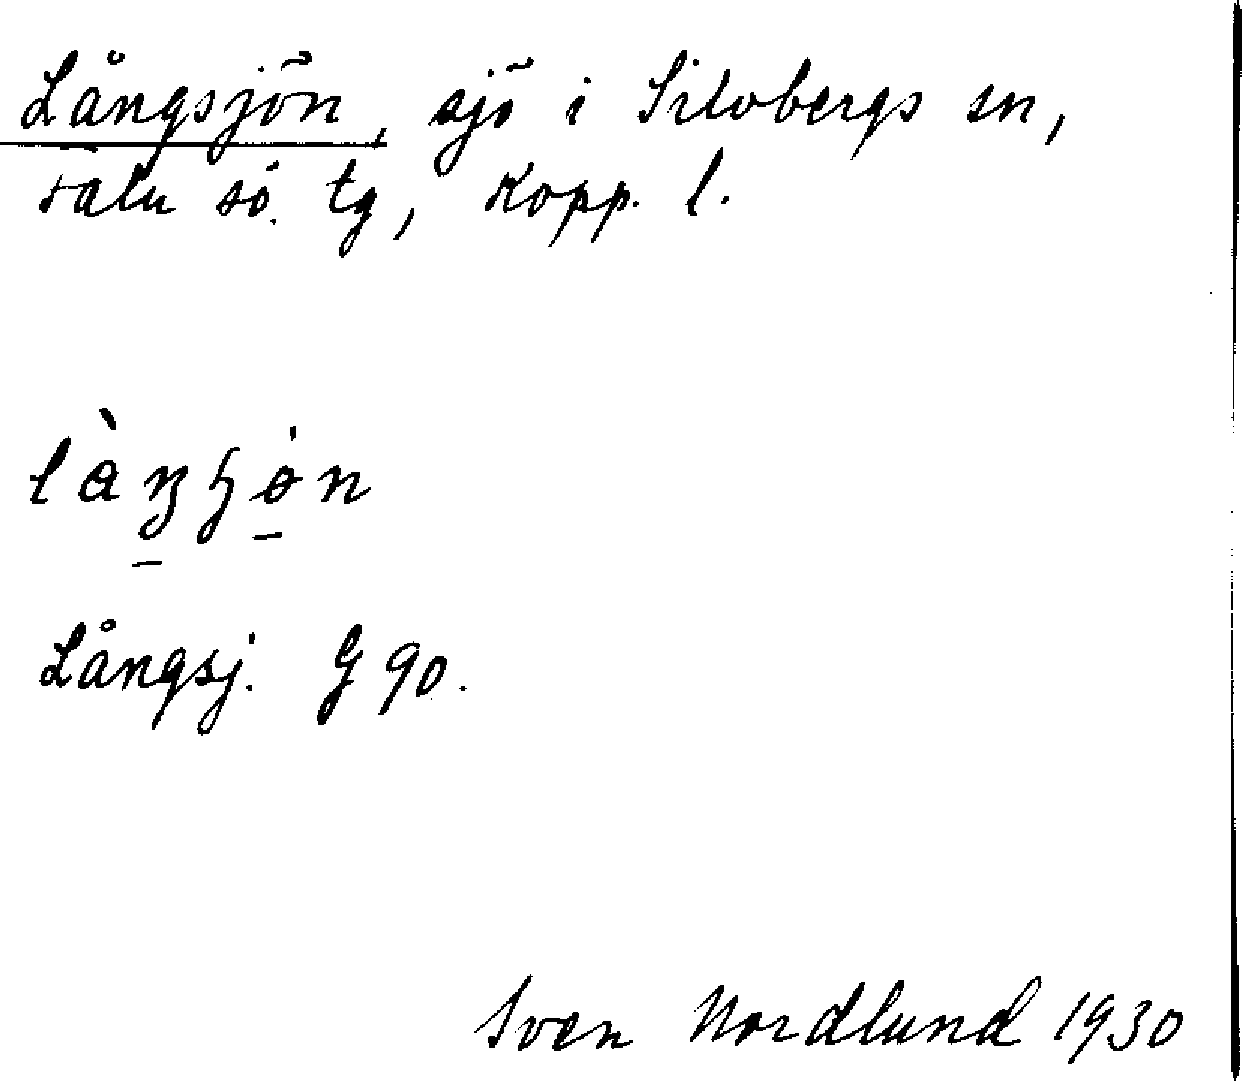 Långsjön, sjö i Silvbergs sn,
Falu sö. tg, Kopp. l.
Långsj. G 90.
Sven Nordlund 1930